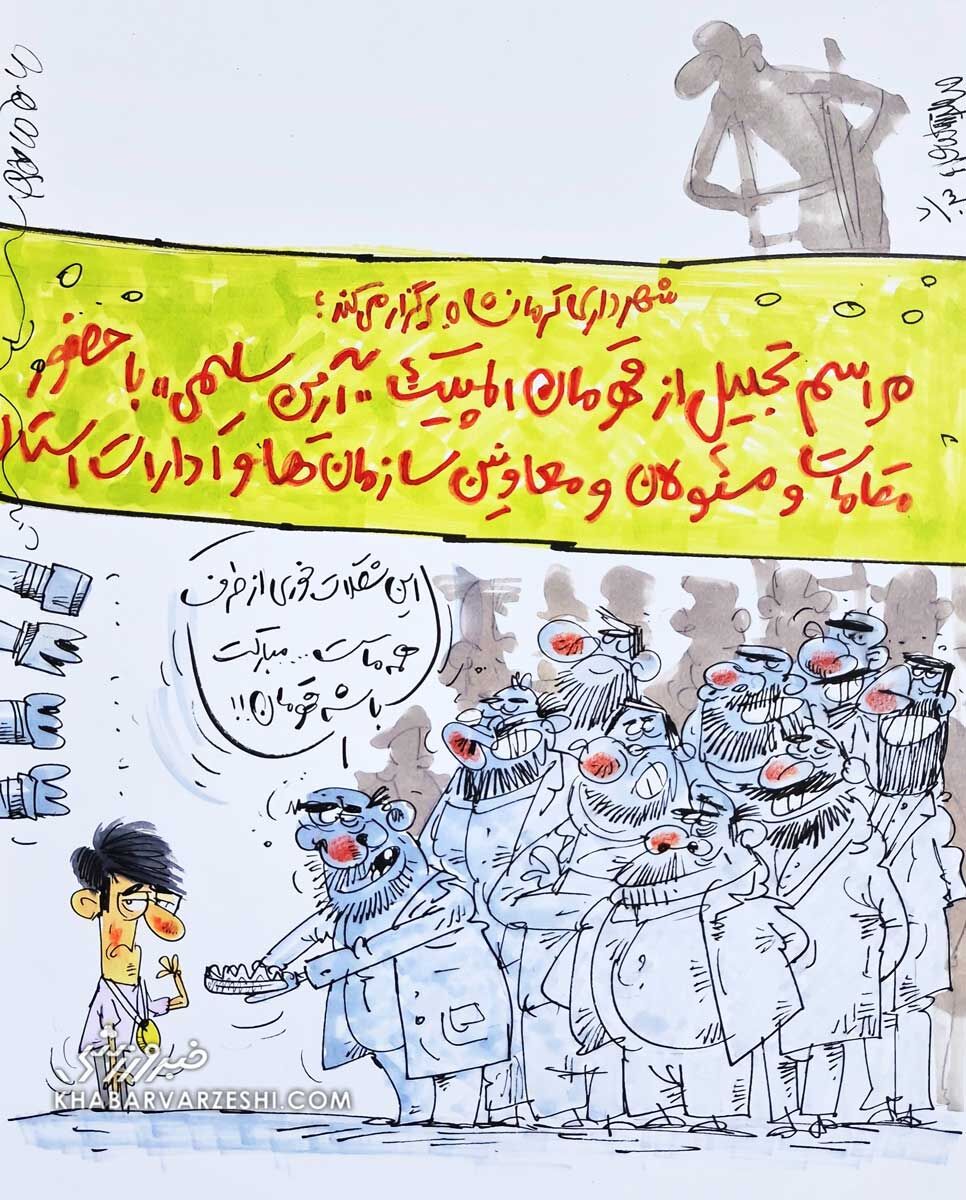 شهرداری کرمانشاه برگزار می‌کند؛
مراسم تجلیل از قهرمان المپیک "آرین سلیمی" با حضور
مقامات و مسئولان و معاونین سازمان‌ها و ادارات استا
این شکلات خوری از طرف
همه ماست... مبارکت
باشه قهرمان!!
خبرورزشی
KHABARVARZESHI.COM